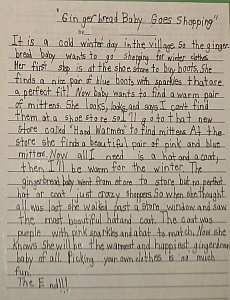 "Gingerbread Baby Goes Shopping"
by
It is a cold winter day in the village so the ginger-
bread baby wants to go shopping for winter clothes.
Her first stop is at the shoe store to buy boots. She
finds a nice pair of blue boots with sparkles that are
a perfect fit! Now baby wants to find a warm pair
of mittens. She looks, looks, and says I cant find
them at a shoe store so I'll go to that new
store called "Hand Warmers" to find mittens. At the
store she finds a beautiful pair of pink and blue
mittens. Now all I need is a hat and a coat,
then I'll be warm for the winter. The
gingerbread baby went from store to store but no perfect
hat or coat just crazy shoppers. So when she thought
all was lost she walked past a store window and saw
the most beautiful hat and coat. The coat was
purple with pink sparkles and a hat to match. Now she
knows she will be the warmest and happiest gingerbread
baby of all. Picking your own clothes is so much
fun!
The End!!!